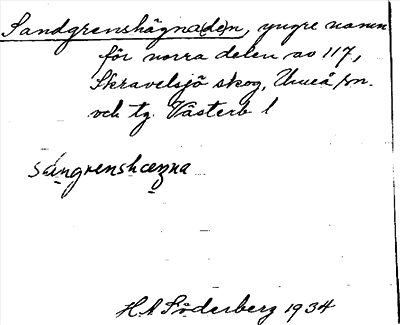 Sandgrenshägna(de)n, yngre namn
för norra delen av 117,
Skravelsjö skog, Umeå sn.
och tg. Västerb l
sángrenshæŋna
H A Söderberg 1934